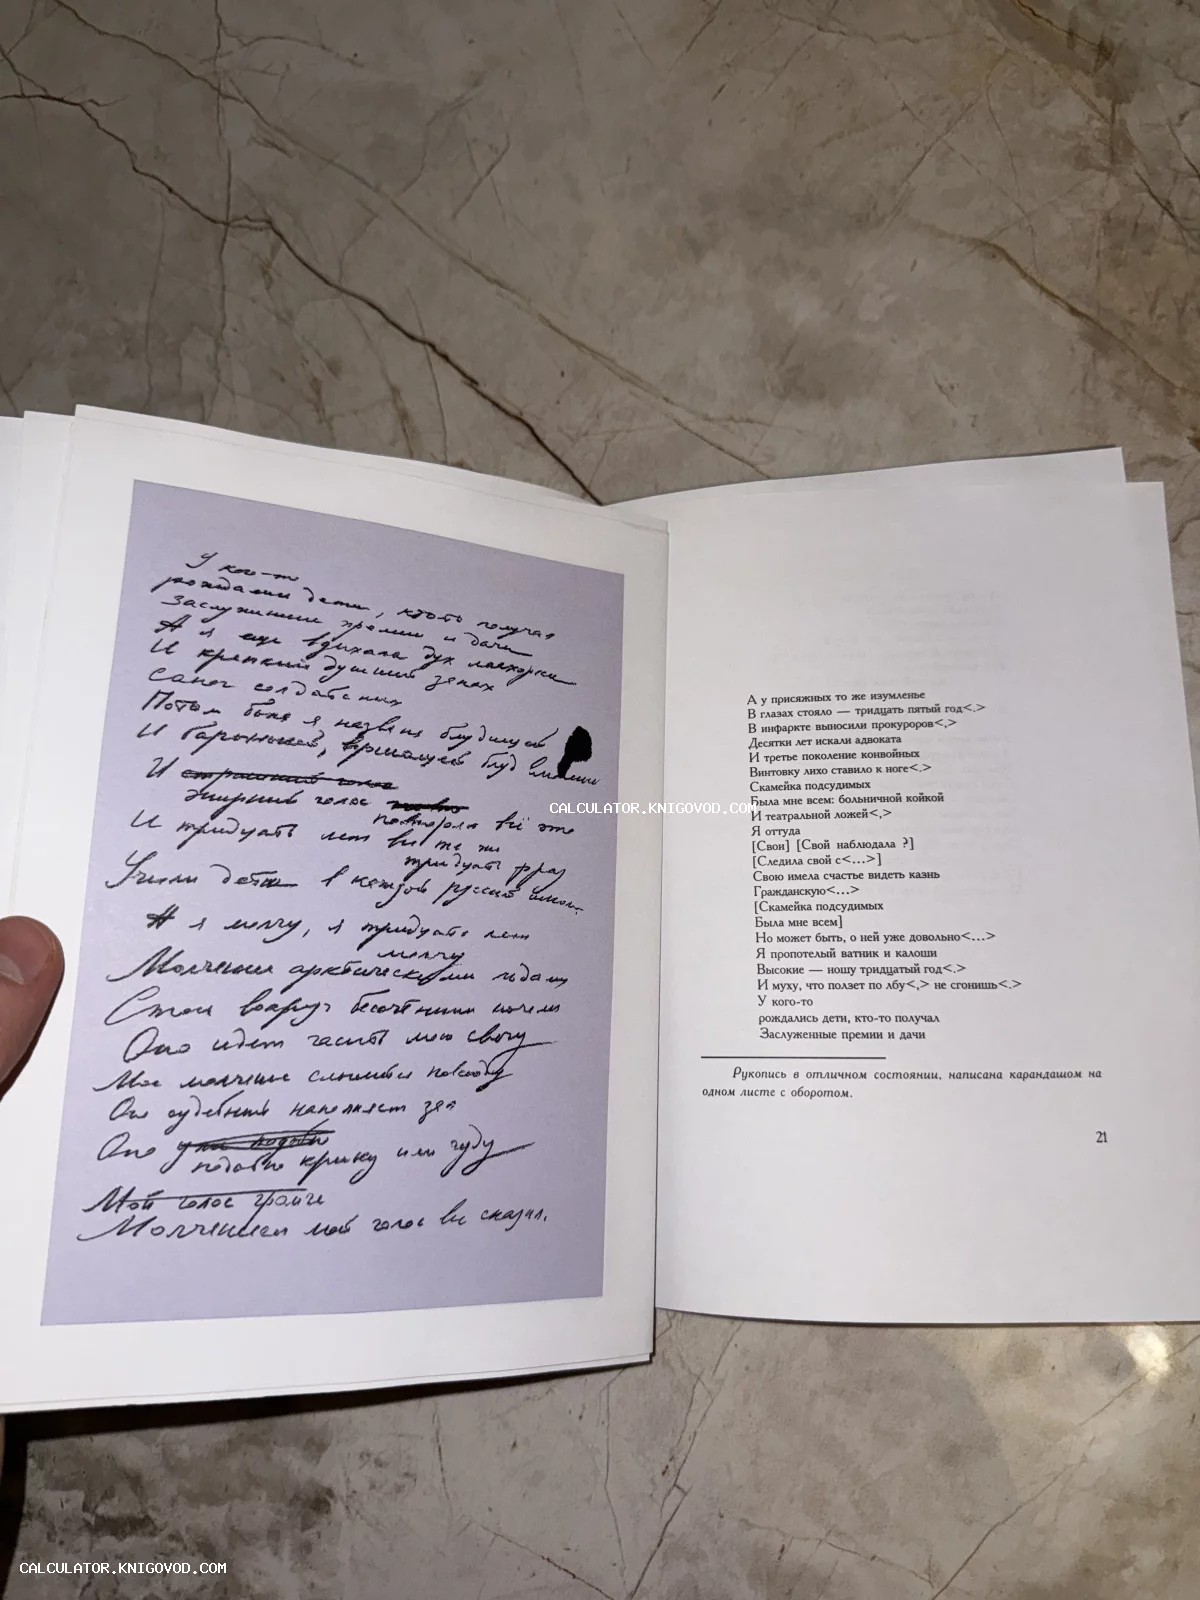 У кого-то
рождались дети, кто-то получал
Заслуженные премии и дачи
А я еще вдыхала дух махорки
И крепкий душный запах
Сапог солдатских
Потом была я названа блудницей
И барынькой,
И страшный голос
Эпирный голос
повторял всё это
И тридцать лет все те же
тридцать фраз
Учили дети в каждой русской школе
А я молчу, я тридцать лет
молчу
Молчание арктическими льдами
Стоит вокруг бессчетными ночами
Оно идет гасить мою свечу
Мое молчанье слышится повсюду
Оно судебный наполняет зал
Оно
подобно крику или чуду
Мой голос громче
Молчанием мой голос все сказал.
А у присяжных то же изумленье
В глазах стояло — тридцать пятый год<.>
В инфаркте выносили прокуроров<,>
Десятки лет искали адвоката
И третье поколение конвойных
Винтовку лихо ставило к ноге<.>
Скамейка подсудимых
Была мне всем: больничной койкой
И театральной ложей<,>
Я оттуда
[Свои] [Свой наблюдала ?]
[Следила свой с<...>]
Свою имела счастье видеть казнь
Гражданскую<...>
[Скамейка подсудимых
Была мне всем]
Но может быть, о ней уже довольно<...>
Я пропотелый ватник и калоши
Высокие — ношу тридцатый год<.>
И муху, что ползет по лбу<,> не сгонишь<.>
У кого-то
рождались дети, кто-то получал
Заслуженные премии и дачи
Рукопись в отличном состоянии, написана карандашом на
одном листе с оборотом.
21
CALCULATOR.KNIGOVOD.COM
CALCULATOR.KNIGOVOD.COM